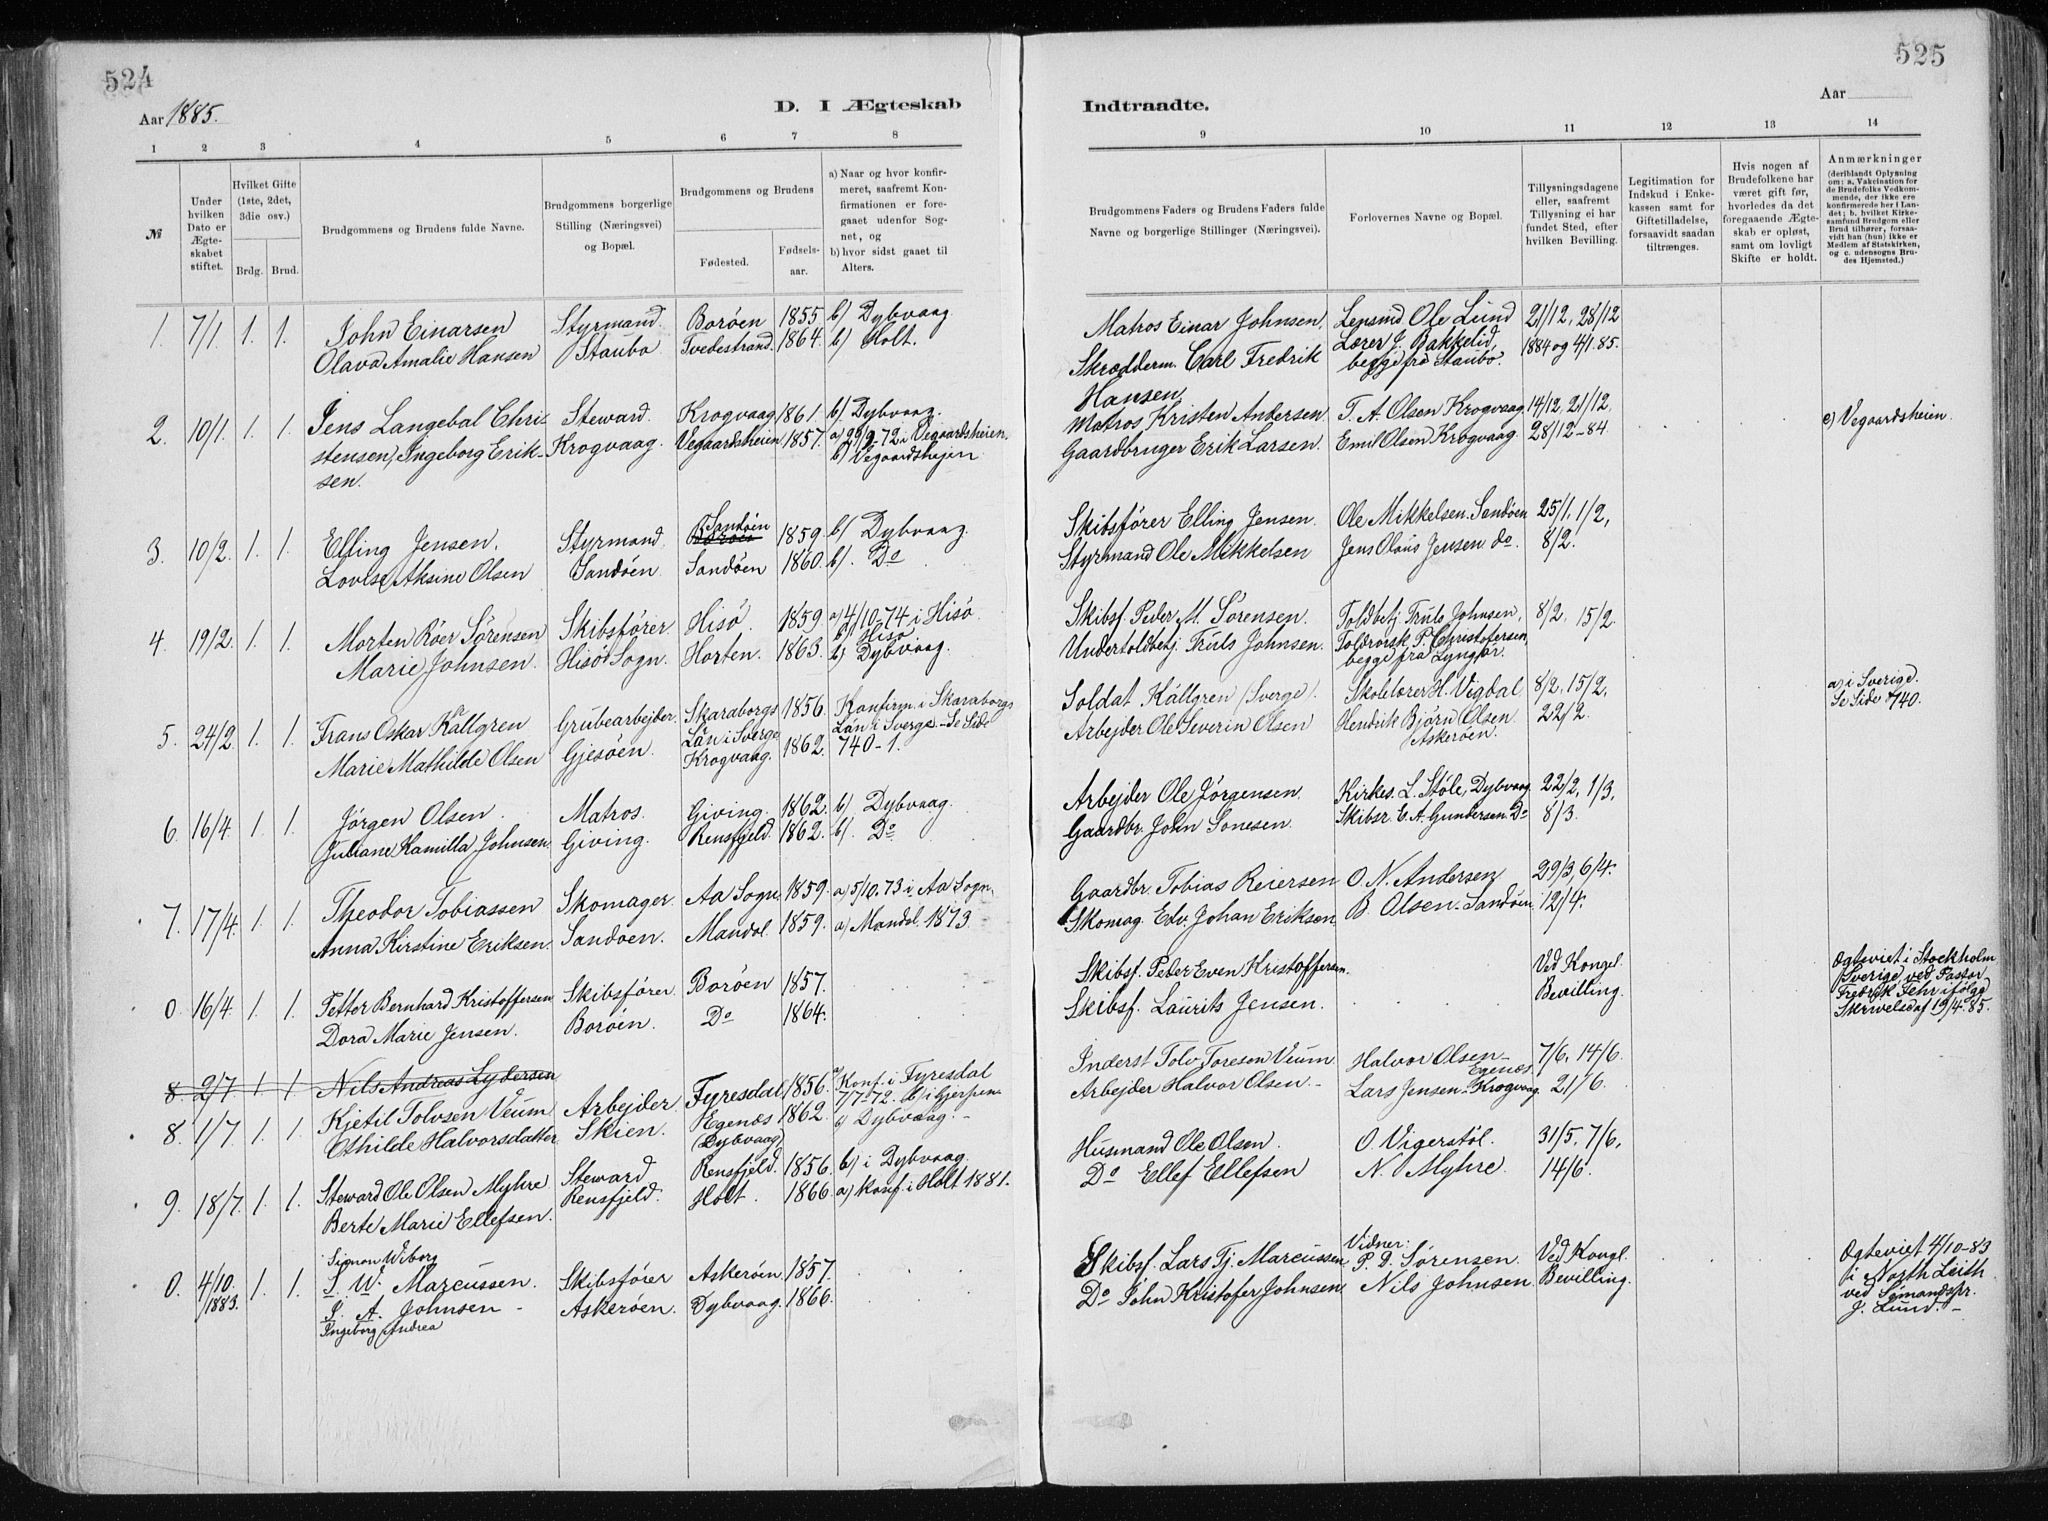 524
Aar 1885.
D. I Ægteskab
1 2 3 4 5 6 7 8
№
Under hvilken Dato er Ægteskabet stiftet.
Hvilket Gifte (1ste, 2det, 3die osv.)
Brdg. Brud.
Brudgommens og Brudens fulde Navne.
Brudgommens borgerlige Stilling (Næringsvei) og Bopæl.
Brudgommens og Brudens
Fødested.
Fødselsaar.
a) Naar og hvor konfirmeret, saafremt Konfirmationen er foregaaet udenfor Sognet, og
b) hvor sidst gaaet til Alters.
1. 7/1 1. 1. John Einarsen Styrmand. Borøen 1855 b) Dybvaag
Olava Amalie Hansen Staubo Tvedestrand. 1864. b) Holt.
2. 10/1 1. 1. Jens Langebal Chri- Steward. Krogvaag. 1861. b) Dybvaag.
stensen, Ingeborg Erik- Krogvaag. Vegaardsheien 1857. a) 29/9-72 i Vegaardsheien.
sen. b) Vegaardshejen
3. 10/2. 1. 1. Elling Jensen. Styrmand Sandøen Borøen 1859. b) Dybvaag.
Lovise Aksine Olsen Sandøen. Sandøen 1860. b). Do
4. 19/2. 1. 1. Morten Röer Sørensen Skibsfører. Hisø. 1859. a) 4/10.74 i Hisø
b) Hisø
Marie Johnsen. Hisø Sogn. Horten. 1863. b) Dybvaag.
5. 24/2. 1. 1. Frans Oskar Källgren Grubearbejder. Skaraborgs 1856. Konfirm. i Skaraborgs
Län i Sverge Län i Sverge. - Se Side
Marie Mathilde Olsen Gjesøen. Krogvaag. 1862. 740-1.
6. 16/4. 1. 1. Jörgen Olsen. Matros. Giving. 1862. b) Dybvaag.
Juliane Kamilla Johnsen. Giving. Rensfjeld. 1862. b). Do
7. 17/4. 1. 1. Theodor Tobiassen Skomager. Aa Sogn. 1859. a) 5/10.73 i Aa Sogn.
Anna Kirstine Eriksen. Sandøen. Mandal. 1859. a) Mandal 1873.
0. 16/4. 1. 1. Petter Bernhard Kristoffersen Skibsfører. Borøen 1857.
Dora Marie Jensen. Borøen. Do 1864.
8. 2/7. 1. 1. Nils Andreas Lydersen
8. 1/7. 1. 1. Kjetil Tolvsen Veum Arbejder Fyresdal 1856. a) Konf. i Fyresdal
7/7-72. b) i Gjerpen
Othilde Halvorsdatter Skien. Egenæs (Dybvaag) 1862. b) Dybvaag. -
9. 18/7. 1. 1. Steward Ole Olsen Myhre Steward Rensfjeld. 1856. b) i Dybvaag.
Berte Marie Ellefsen. Rensfjeld. Holt. 1866. a) Konf. i Holt 1881.
Simon Wiborg
0. 4/10 1883. 1. 1. S. W. Marcussen. Skibsfører Askerøen. 1857.
I. A. Johnsen - Askerøen. Dybvaag. 1866.
Ingeborg Andrea
525
Indtraadte.
Aar
9 10 11 12 13 14
Brudgommens Faders og Brudens Faders fulde Navne og borgerlige Stillinger (Næringsvei).
Forlovernes Navne og Bopæl.
Tillysningsdagene eller, saafremt Tillysning ei har fundet Sted, efter hvilken Bevilling.
Legitimation for Indskud i Enkekassen samt for Giftetilladelse, forsaavidt saadan tiltrænges.
Hvis nogen af Brudefolkene har været gift før, hvorledes da det foregaaende Ægteskab er opløst, samt om lovligt Skifte er holdt.
Anmærkninger
(deriblandt Oplysning om: a. Vakcination for de Brudefolks Vedkommende, der ikke ere konfirmerede her i Landet; b. hvilket Kirkesamfund Brudgom eller Brud tilhører, forsaavidt han (hun) ikke er Medlem af Statskirken, og c. udensogns Brudes Hjemsted.)
Matros Einar Johnsen. Lensmd Ole Lund 21/12, 28/12
Skrædderm. Carl Fredrik Lærer J. Bakkelid, 1884 og 4/1.85.
Hansen begge fra Staubø.
Matros Kristen Andersen T. A. Olsen Krogvaag. 14/12, 21/12,
Gaardbruger Erik Larsen. Emil Olsen Krogvaag. 28/12-84. c) Vegaardsheien.
Skibsfører Elling Jensen. Ole Mikkelsen. Sandøen 25/1, 1/2,
Styrmand Ole Mikkelsen Jens Olaus Jensen do. 8/2.
Skibsf. Peder M. Sørensen. Toldbetj Truls Johnsen, 8/2. 15/2.
Undertoldbetj. Truls Johnsen. Toldrorsk. P. Christofersen,
begge fra Lyngør.
Soldat Källgren (Sverge). Skolelærer H. Vigdal 8/2, 15/2, a) i Sverige.
Arbejder Ole Severin Olsen Hendrik Bjørn Olsen 22/2. Se Side 740.
Askerøen.
Arbejder Ole Jörgensen. Kirkes. L. Støle, Dybvaag 22/2, 1/3,
Gaardbr. John Sonesen. Skibsr. E. A. Gundersen. Do 8/3.
Gaardbr. Tobias Reiersen O. N. Andersen 29/3, 6/4.
Skomag. Edv. Johan Eriksen B. Olsen - Sandøen. 12/4.
Skibsf. Peder Even Kristoffersen. Ved Kongel. Ogteviet i Stockholm
Skibsf. Laurits Jensen. Bevilling. Sverige ved Pastor
Fredrik Fehr ifölge
Skrivelse af 19/4.85.
Inderst Tolv Toreson Veum Halvor Olsen - Egenæs 7/6, 14/6
Arbejder Halvor Olsen. - Lars Jensen - Krogvaag 21/6.
Husmand Ole Olsen. O. Vigerstöl. 31/5. 7/6,
Do Ellef Ellefsen N. Myhre. 14/6.
Vidner:
Skibsf. Lars Tj. Marcussen P. D. Sørensen. Ved Kongl. Ogteviet 4/10-83
Do John Kristofer Johnsen Nils Johnsen Bevilling. i North Leith
ved Sömandspr.
J. Lund. -